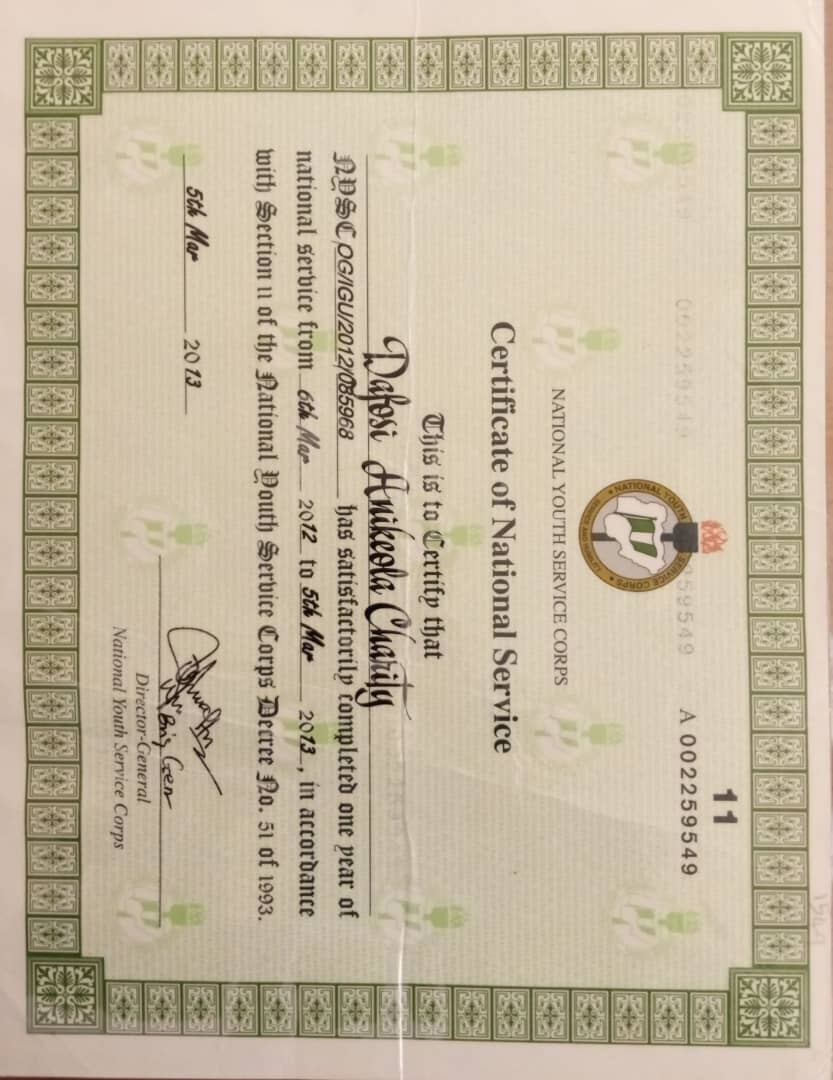 11
A 002259549
NATIONAL YOUTH SERVICE CORPS
NATIONAL YOUTH SERVICE CORPS
Certificate of National Service
This is to Certify that
Dafosi Anikeola Charity
NYSC OG/IGU/2012/085968 has satisfactorily completed one year of
national service from 6th Mar 2012 to 5th Mar 2013, in accordance
with Section 11 of the National Youth Service Corps Decree No. 51 of 1993.
5th Mar 2013
Brig Gen
Director-General
National Youth Service Corps